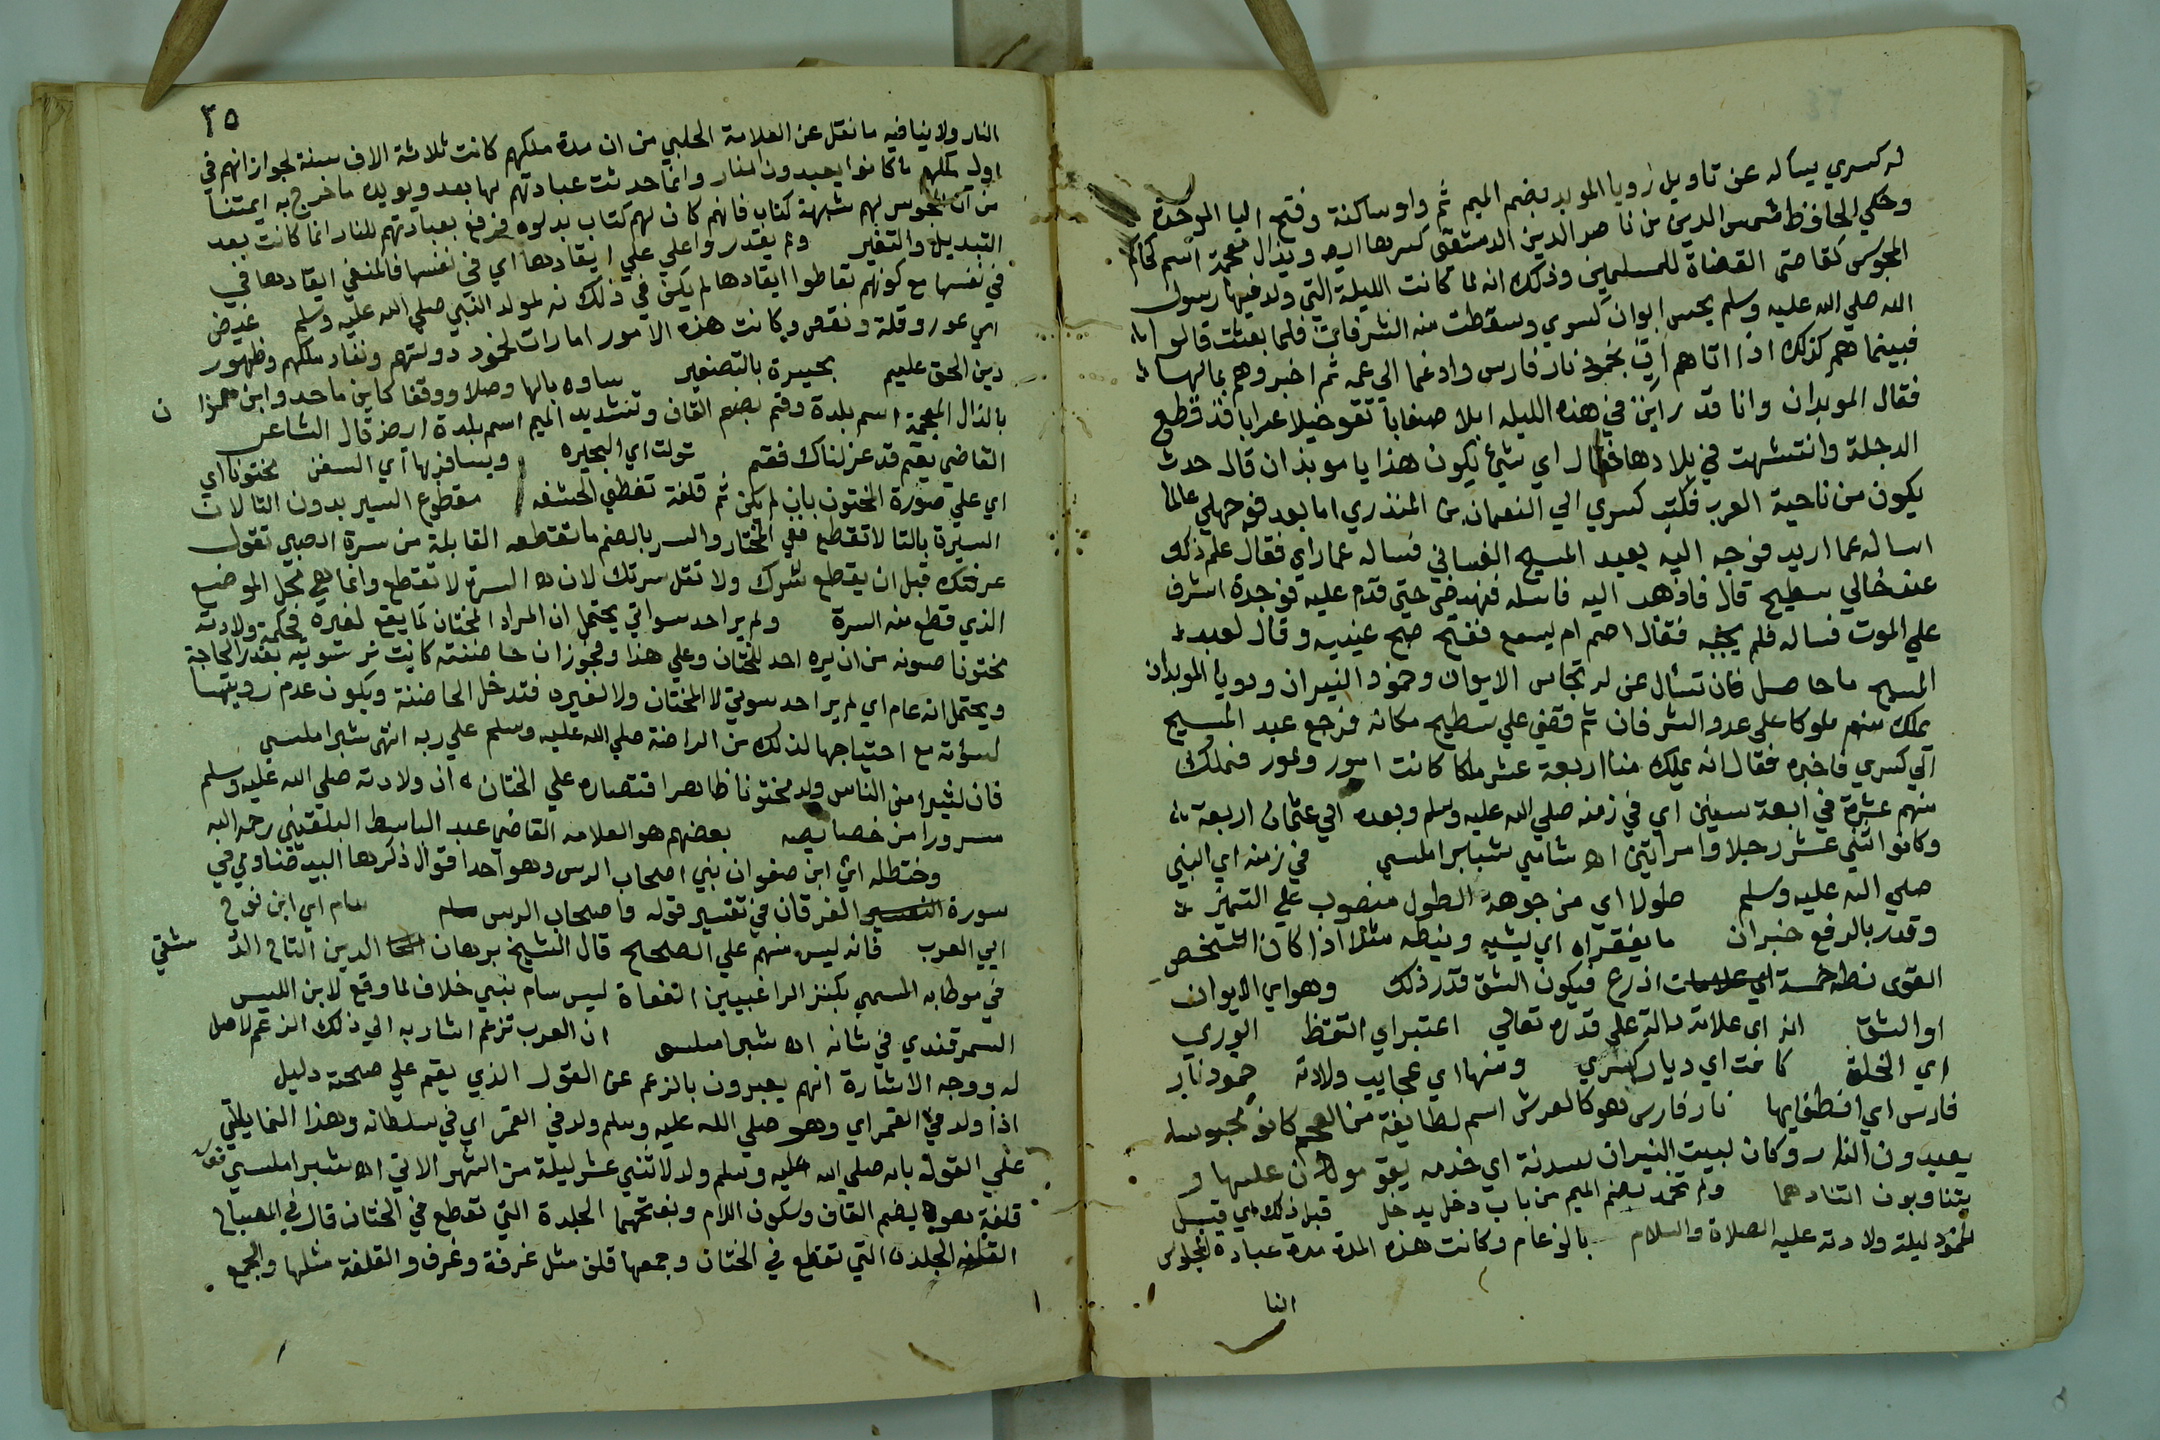 له كسري يساله عن تاويل رويا الموبد بضم الميم ثم واو ساكنة وفتح البا الموحدة
وحكي الحافظ شمس الدين بن ناصر الدين الدمشقي كسرها اه وبذال معجمة اسم لحاكم
المجوس كقاضي القضاة للمسلمين وذلك انه لما كانت الليلة التي ولد فيها رسول
الله صلي الله عليه وسلم ايوان كسري وسقطت منه الشرفات فلما بعثت قالوا
فبينما هم كذلك اذا اتاهم آت بخمود نار فارس وادغما الي عمه ثم اخبروهم بما لها
فقال الموبدان وانا قد رايت في هذه الليله ابلا صعابا تقو خيلا عرابا قد قطع
الدجلة وانتشهت في بلادها فقال اي شئ يكون هذا يا موبذان قال حدث
يكون من ناحية العرب فكتب كسري الي النعمان بن المنذري اما بعد فوجهلي عالما
اساله عما اريد فوجه اليه بعبد المسيح الغساني فساله عما راي فقال علم ذلك
عند خالي سطيح قال فاذهب اليه فاسله فنهض حتي قدم عليه فوجدة اشرف
علي الموت فساله فلم يجبه فقال اصم ام يسمع ففتح صح عينيه وقال لعبد
المسيح ما حاصل فان تسأل عن لرتجاس الايوان وخمود النيران ورويا الموبدان
يملك منهم ملوكا علي عدد الشرفان ثم قضي علي سطيح مكانه فرجع عبد المسيح
الي كسري فاخبره فقال انه يملك منا اربعة عشر ملكا كانت امور وامور فملك
منهم عشرة في اربعة سنين اي في زمنه صلي الله عليه وسلم وبعده الي عثمان اربعة
وكانوا اثني عشر رجلا وامراتين اه شامي شبراملسي في زمنه اي النبي
صلي الله عليه وسلم طولا اي من جوهة الطول منصوب علي التميز
وقدر بالرفع خبران ما يفقراه اي ليشيه ونيطه مثلا اذا كان الشخص
القوي نطه خمسة اذرع فيكون الشق قدر ذلك وهو اي الايوان
او الشق انه اي علامة دالة علي قدره تعالي اعتبر اي اتعظ الوري
اي الخلق كانت اي ديار كسري ومنها اي عجايب ولادته خمود نار
فارس اي انطفايها نار فارس هو كالعرش اسم لطايفة من العجم كانو مجوسا
يعبدون النار وكان لبيت النيران سدنة اي خدمه يقومون عليها و
يتناوبون اتقادها ولم تخمد بضم الميم من باب دخل يدخل قبل ذلك اي قبل
خمود ليلة ولادته عليه الصلاة والسلام بالف عام وكانت هذه المدة مدة عبادة المجوس
النا
٣٥
النار ولا ينافيه ما نقل عن العلامة الحلبي من ان مدة ملكهم كانت ثلاثة الاف سنة لجواز انهم في
اول ملكهم ما كانوا يعبدون النار وانما حدثت عبادتهم لها بعد ويويده ما خرج به ايمتنا
من ان المجوس لهم شبهة كتاب فانهم كان لهم كتاب بدلوه فرفع بعبادتهم للنار انما كانت بعد
التبديل والتغير ولم يقدروا علي علي ايقادها اي في نفسها فالمنفي ايقادها في
في نفسها مع كونهم تعاطوا ايقادها لم يكن في ذلك نه لمولد النبي صلي الله عليه وسلم غيض
اي غور وقلة ونقص وكانت هذه الامور امارات لخمود دولتهم ونفاد ملكهم وظهور
دين الحق عليهم بحيرة بالتصغير ساوه بالها وصلا ووقفا كابن ماجد وابن همذا ن
بالذال المعجمة اسم بلدة وقم بضم القاف وتشديد الميم اسم بلدة ارض قال الشاعر
القاضي بقم قد عزلناك فقم تولت اي البحيره ويسافر بها اي السفن مختونا اي
اي علي صورة المختون بان لم يكن ثم قلفة تغطي الحشفه مقطوع السير بدون التا لان
السيرة بالتا لا تقطع ففي المختار والسر بالضم ما تقطعه القابلة من سرة الصبي تقول
عرفتك قبل ان يقطع سرك ولا تقل سرتك لان السرة لا تقطع وانما هي محل الموضع
الذي قطع منه السرة ولم ير احد سواتي يحتمل ان المراد المختان لما يقع لغيره فحكمة ولادته
مختونا صونه من ان يره احد للختان وعلي هذا ومجوز ان حاضنته كانت تر سوئيه بقدر الحاجة
ويحتمل انه عام اي لم ير احد سوئتي لا المختان ولا لغيره فتدخل الحاضنة ويكون عدم رويتها
لسؤته مع احتياجها لذلك من الراضة صلي الله عليه وسلم علي ربه انتهي شبراملسي
فان كثيرا من الناس ولد مختونا ظاهرا قتصاره علي الختان ان ولادته صلي الله عليه وسلم
مسرورا من خصايصه بعضهم هو العلامه القاضي عبد الباسط البلقيني رحمه الله
وحنظله اي ابن صفوان بني اصحاب الرس وهو احد اقوال ذكرها البيضاوي في
سورة الفرقان في تفسير قوله واصحاب الرس سام اي ابن نوح
ابي العرب فانه ليس منهم علي الصحاح قال الشيخ برهان الدين التاج الد مشقي
في موطا به المسمي بكنز الراغبيين العفاة ليس سام نبي خلاف لما وقع لابن الليس
السمرقندي في شانه اه شبراملسي ان العرب تزعم اشار به الي ذلك الزعم لا اصل
له ووجه الاشارة انهم يعبرون بالزعم عن القول الذي يقم علي صحته دليل
اذا ولد في القمر اي وهو صلي الله عليه وسلم ولد في القمر اي في سلطانه وهذا انما ياتي
علي القول بانه صلي الله عليه وسلم ولد لاثني عشر ليلة من الشهر الاتي اه شبراملسي قوله
قلفة هو بضم القاف وسكون اللام وبفتحهما الجلدة التي تقطع في الختان قال في المصباح
القلفه الجلدة التي تقطع في الختان وجمعها قلف مثل غرفة وغرف والقلفة مثلها والجمع